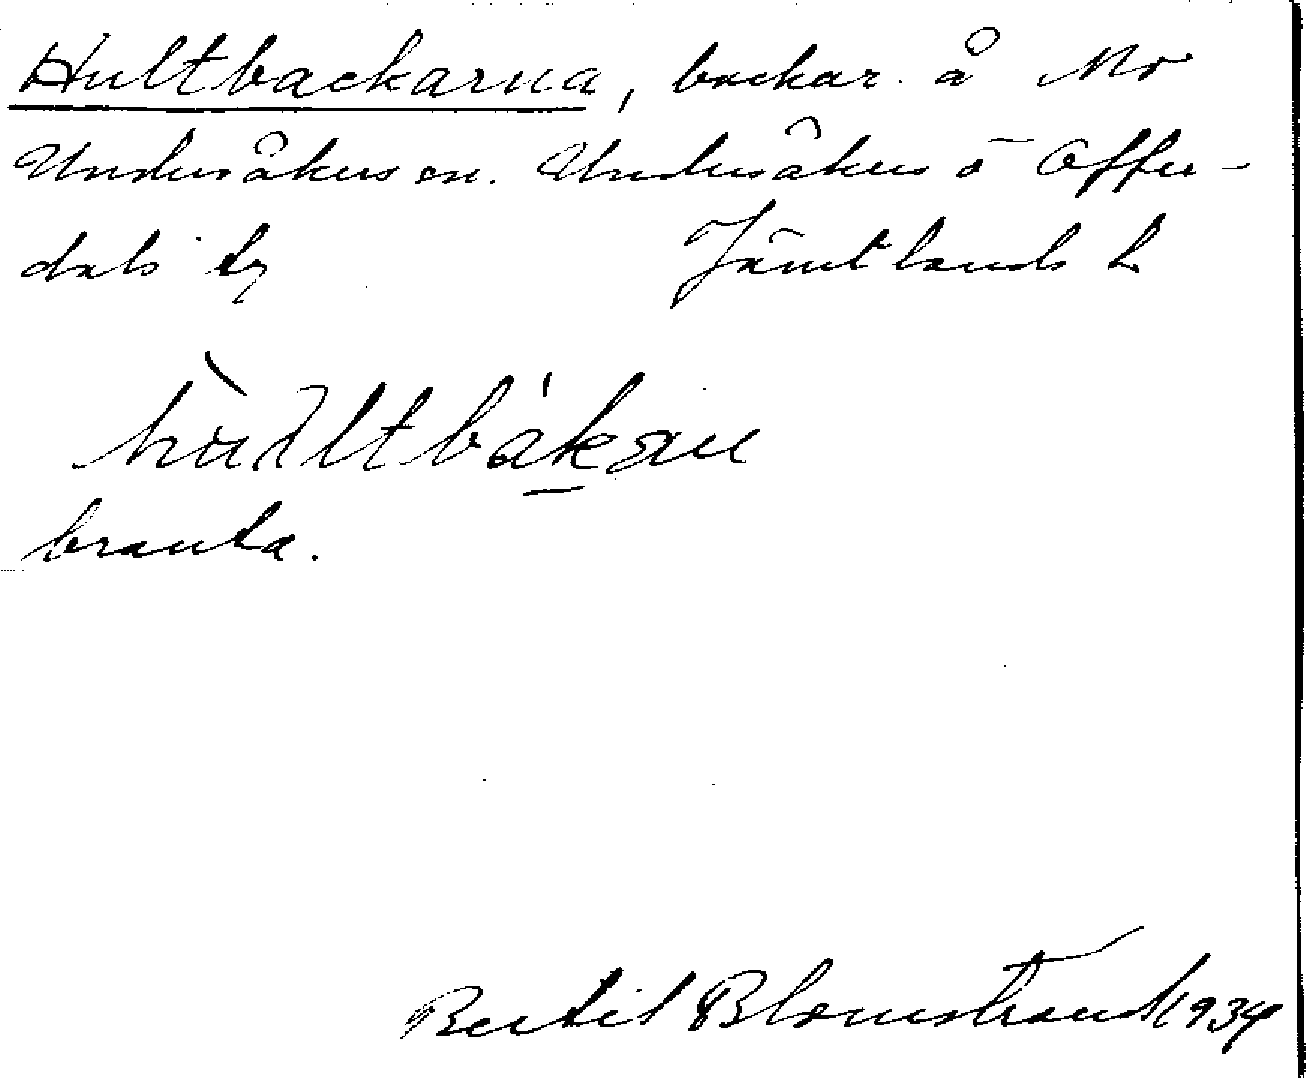 Hultbackarna, backar å Mo
Undersåkers sn. Undersåkers o Offer-
dals tg Jämtlands l
branta.
Bertil Blomstrand 1934